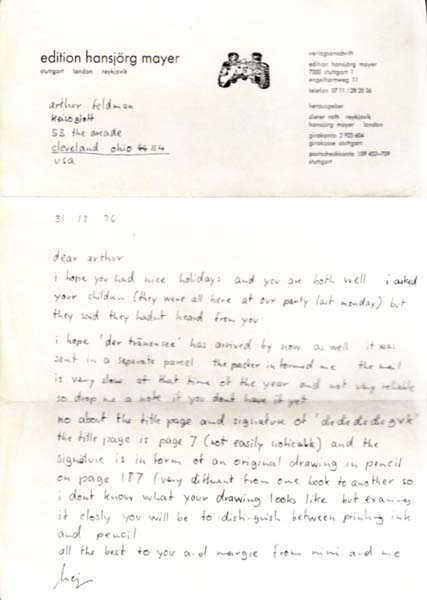 edition hansjörg mayer
stuttgart london reykjavik
verlagsanschrift
edition hansjörg mayer
7000 stuttgart 1
engelhornweg 11
telefon 07 11 / 28 20 36
herausgeber
dieter roth reykjavik
hansjörg mayer london
girokonto 2 923 604
girokasse stuttgart
postscheckkonto 109 453–709
stuttgart
arthur feldman
53 the arcade
cleveland ohio 44114
usa
31 12 76
dear arthur
i hope you had nice holidays and you are both well i asked
your children (they were all here at our party last monday) but
they said they hadnt heard from you
i hope 'der tränensee' has arrived by now as well it was
sent in a separate parcel the packer informed me the mail
is very slow at that time of the year and not very reliable
so drop me a note if you dont have it yet
no about the title page and signature of 'die die die die gvk'
the title page is page 7 (not easily noticable) and the
signature is in form of an original drawing in pencil
on page 187 (very diffrent from one book to another so
i dont know what your drawing looks like but examing
it closly you will be to dishtinguish between printing ink
and pencil
all the best to you and margie from mimi and me
hej